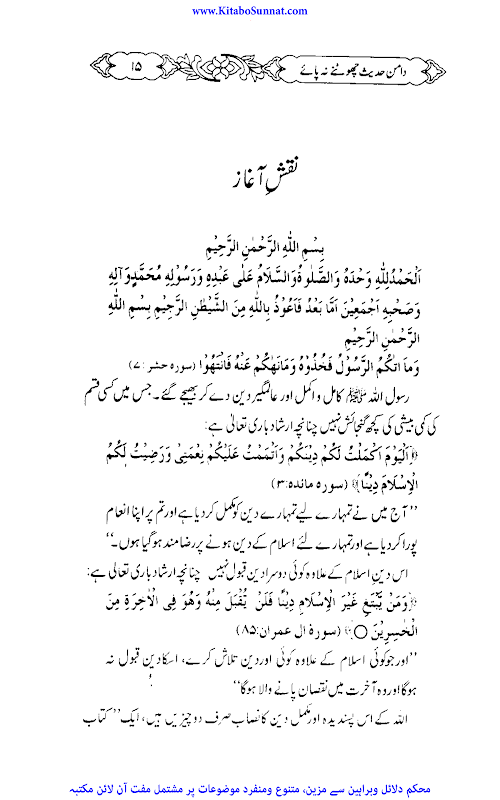 www.KitaboSunnat.com
دامن حدیث چھوٹنے نہ پائے
۱۵
نقشِ آغاز
بِسْمِ اللّٰهِ الرَّحْمٰنِ الرَّحِيْمِ
اَلْحَمْدُلِلّٰهِ وَحْدَهٗ وَالصَّلٰوةُ وَالسَّلَامُ عَلٰى عَبْدِهٖ وَرَسُوْلِهٖ مُحَمَّدٍ وَّآلِهٖ
وَصَحْبِهٖ اَجْمَعِيْنَ اَمَّا بَعْدُ فَاَعُوْذُ بِاللّٰهِ مِنَ الشَّيْطٰنِ الرَّجِيْمِ بِسْمِ اللّٰهِ
الرَّحْمٰنِ الرَّحِيْمِ
وَمَا اٰتٰكُمُ الرَّسُوْلُ فَخُذُوْهُ وَمَانَهٰكُمْ عَنْهُ فَانْتَهُوْا (سورہ حشر:۷)
رسول اللہ ﷺ کامل و اکمل اور عالمگیر دین دے کر بھیجے گئے۔ جس میں کسی قسم
کی کمی بیشی کی کچھ گنجائش نہیں چنانچہ ارشاد باری تعالیٰ ہے:
﴿اَلْيَوْمَ اَكْمَلْتُ لَكُمْ دِيْنَكُمْ وَاَتْمَمْتُ عَلَيْكُمْ نِعْمَتِيْ وَرَضِيْتُ لَكُمُ
الْاِسْلَامَ دِيْنًا﴾ (سورہ مائدہ:۳)
’’آج میں نے تمہارے لیے تمہارے دین کو مکمل کر دیا ہے اور تم پر اپنا انعام
پورا کر دیا ہے اور تمہارے لئے اسلام کے دین ہونے پر رضامند ہو گیا ہوں۔‘‘
اس دین اسلام کے علاوہ کوئی دوسرا دین قبول نہیں چنانچہ ارشاد باری تعالیٰ ہے:
﴿وَمَنْ يَّبْتَغِ غَيْرَ الْاِسْلَامِ دِيْنًا فَلَنْ يُّقْبَلَ مِنْهُ وَهُوَ فِى الْاٰخِرَةِ مِنَ
الْخٰسِرِيْنَ ○﴾ (سورۂ ال عمران:۸۵)
’’اور جو کوئی اسلام کے علاوہ کوئی اور دین تلاش کرے، اسکا دین قبول نہ
ہو گا اور وہ آخرت میں نقصان پانے والا ہو گا‘‘
اللہ کے اس پسندیدہ اور مکمل دین کا نصاب صرف دو چیزیں ہیں، ایک ’’کتاب
محکم دلائل وبراہین سے مزین، متنوع ومنفرد موضوعات پر مشتمل مفت آن لائن مکتبہ